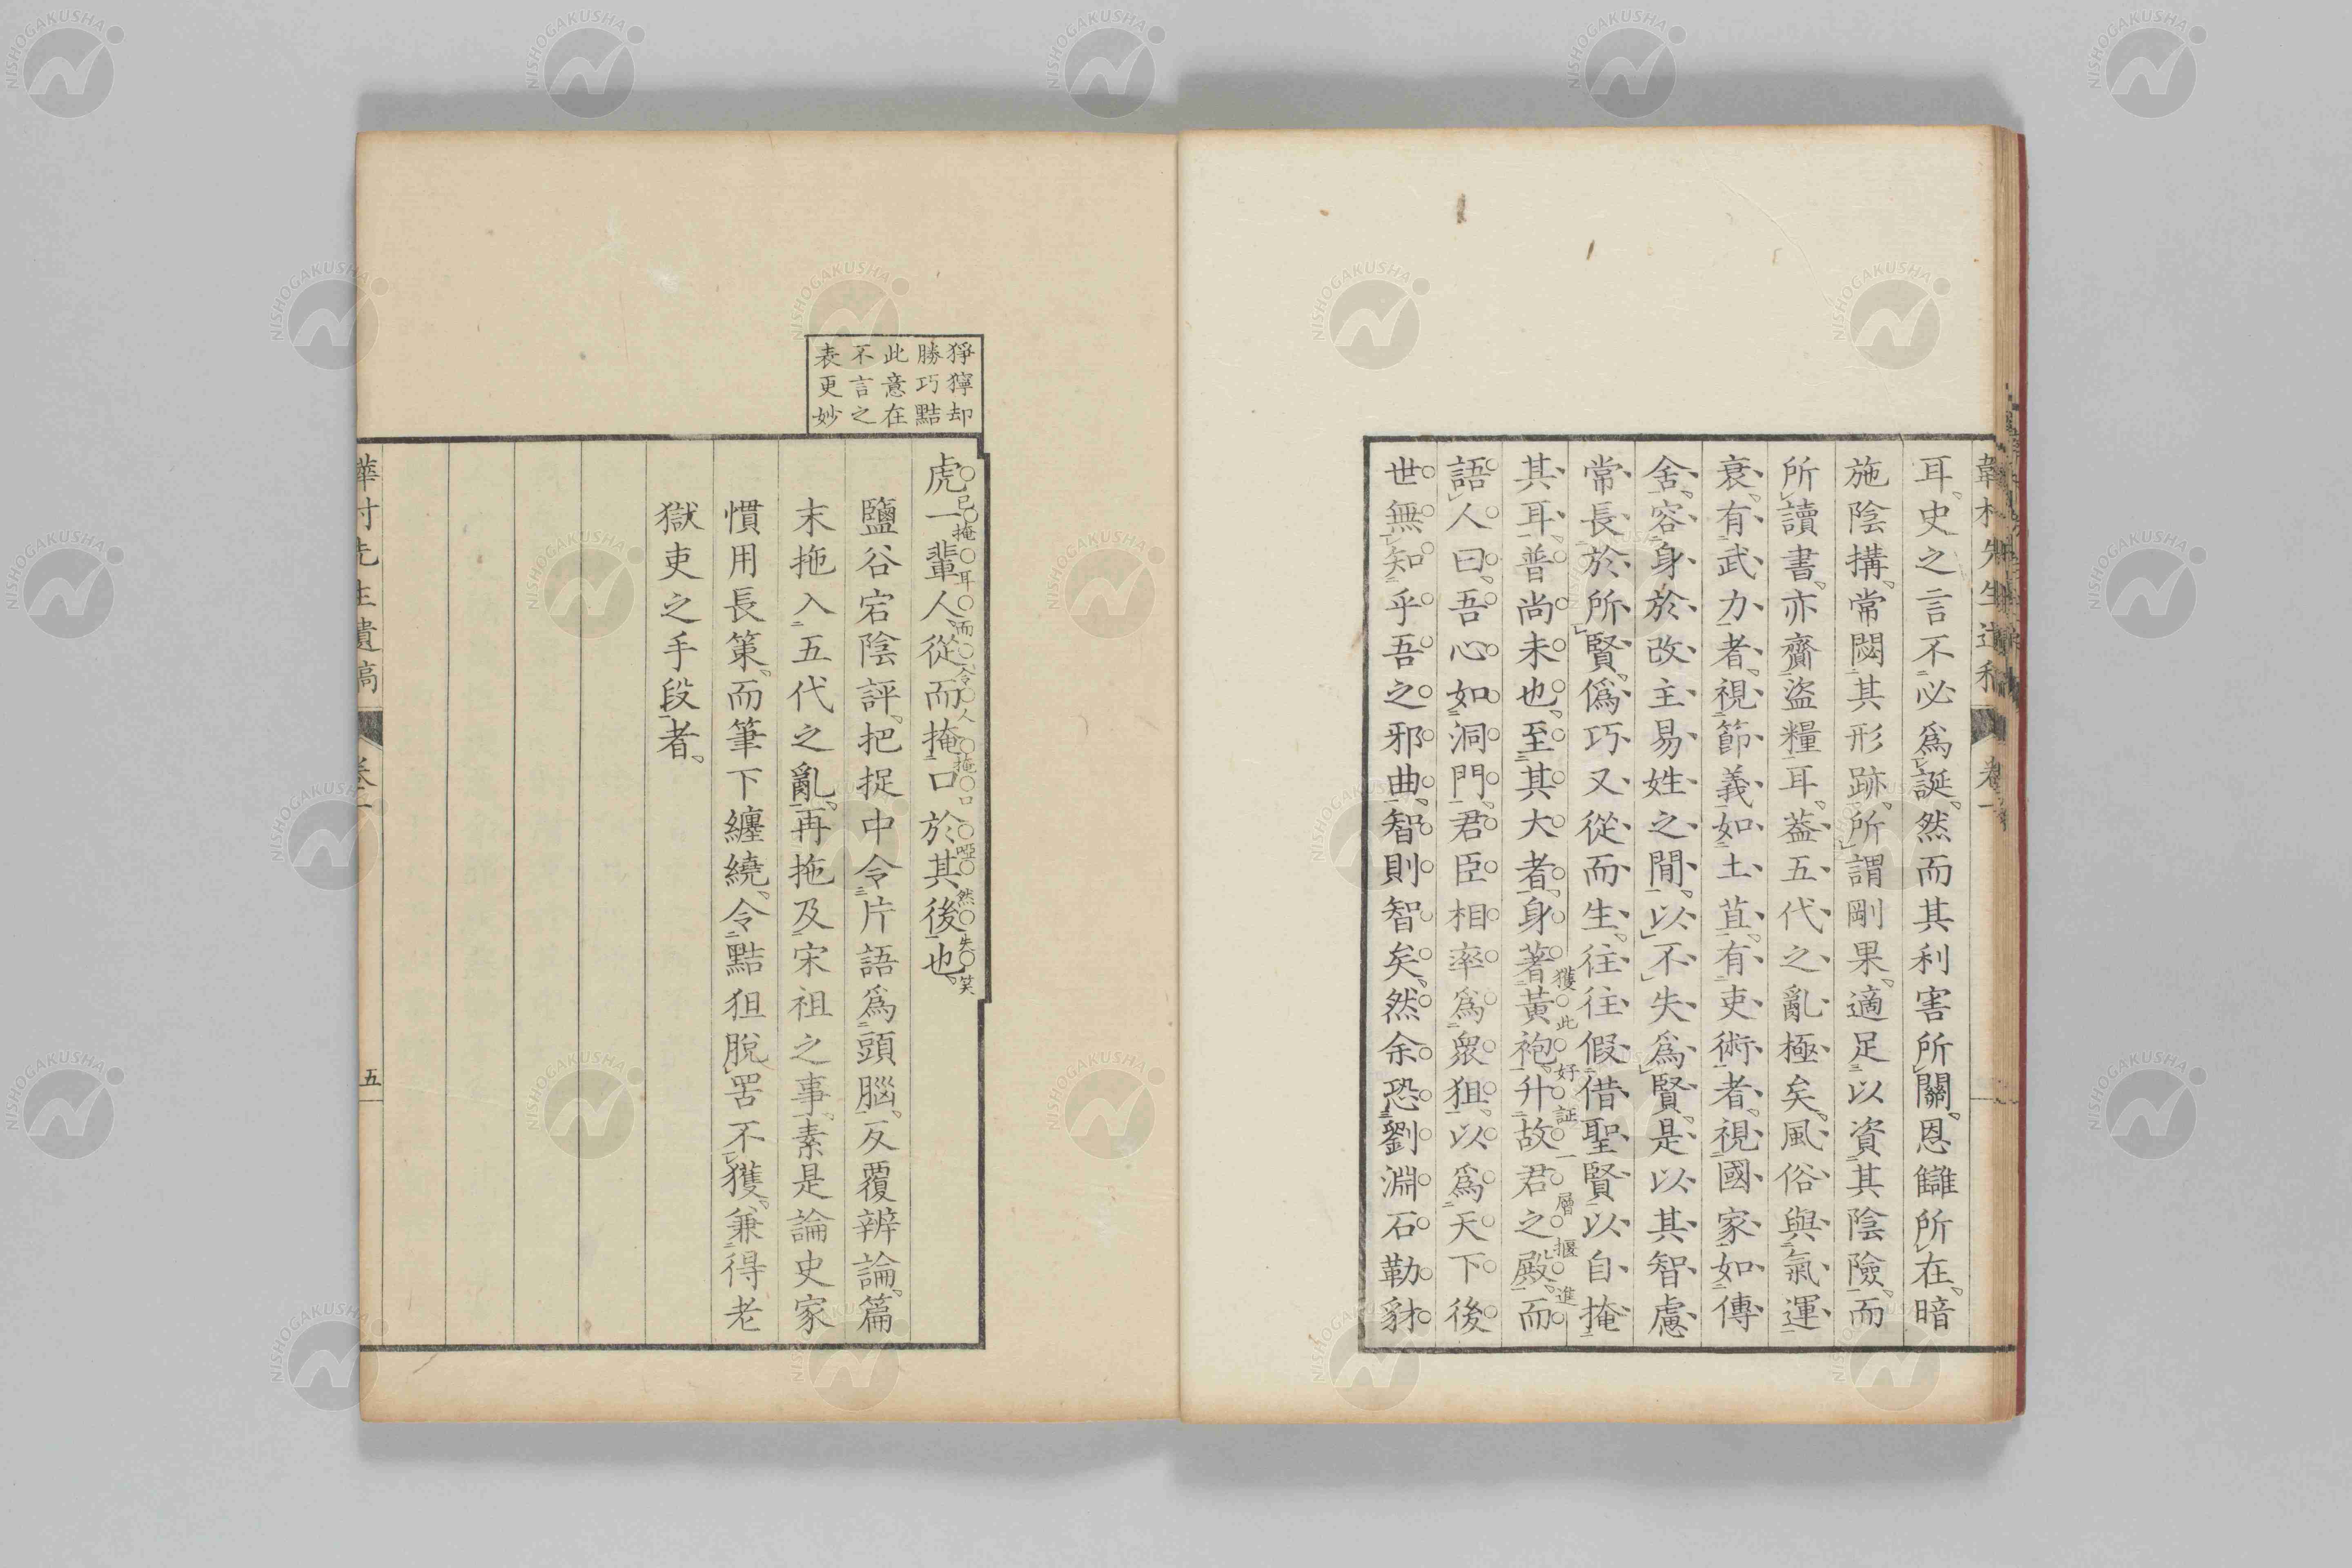 耳史之言不必爲誕然而其利害所關恩讎所在暗
施陰搆常閟其形跡所謂剛果適足以資其陰險而
所讀書亦齎盜糧耳蓋五代之亂極矣風俗與氣運
衰有武力者視節義如土苴有吏術者視國家如傳
舍容身於改主易姓之間以不失爲賢是以其智慮
常長於所賢僞巧又從而生往往假借聖賢以自掩
其耳普尚未也至其大者身著黃袍升故君之殿而
獲此好証一層揠進
語人曰吾心如洞門君臣相率爲衆狙以爲天下後
世無知乎吾之邪曲智則智矣然余恐劉淵石勒豺
卷一
猙獰却
勝巧黠
此意在
不言之
表更妙
虎一輩人從而掩口於其後也
已掩耳而令人掩口啞然失笑
鹽谷宕陰評把捉中令片語爲頭腦反覆辨論篇
末拖入五代之亂再拖及宋祖之事素是論史家
慣用長策而筆下纏繞令黠狙脫罟不獲兼得老
獄吏之手段者
先生遺稿
五
NISHOGAKUSHA